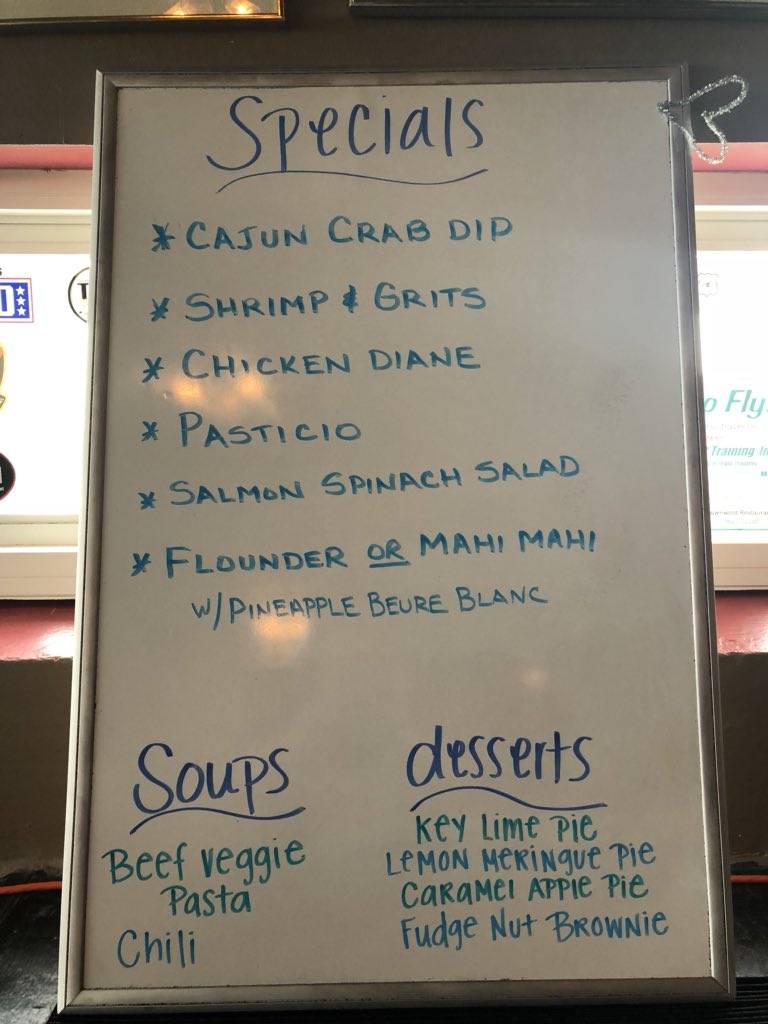 Specials
* CAJUN CRAB DIP
* SHRIMP & GRITS
* CHICKEN DIANE
* PASTICIO
* SALMON SPINACH SALAD
* FLOUNDER OR MAHI MAHI
W/PINEAPPLE BEURE BLANC
Soups
Beef veggie
Pasta
Chili
desserts
Key Lime Pie
Lemon Meringue Pie
Caramel Apple Pie
Fudge Nut Brownie
o Fly
Training In